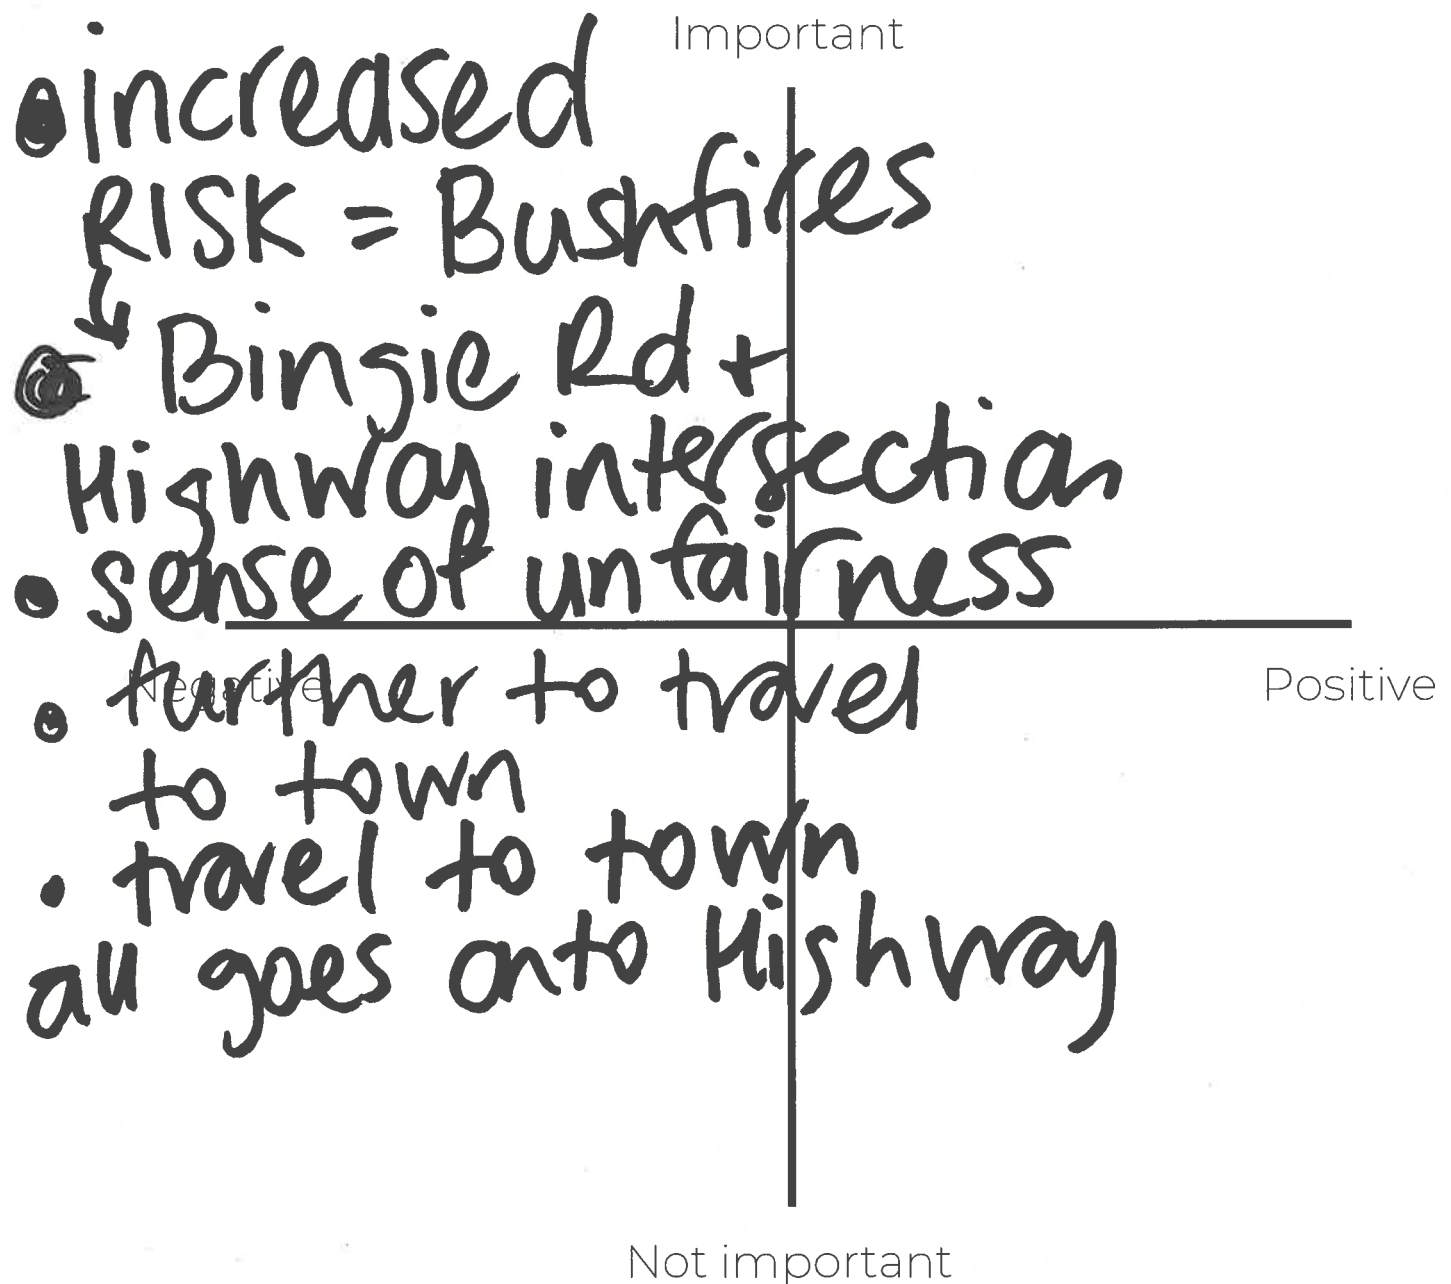 Important
• increased
RISK = Bushfires
↓
• Bingie Rd +
Highway intersection
• sense of unfairness
Negative
Positive
• further to travel
to town
• travel to town
all goes onto Highway
Not important